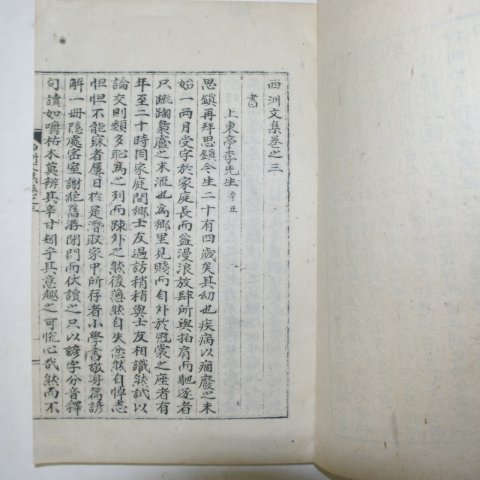 西洲文集卷之三
書
上東亭李先生 辛丑
思鎭再拜思鎭今生二十有四歲矣其幼也疾病以痼廢之未
始一兩月受字於家庭長而益漫浪放肆所與拍肩而馳逐者
只蹴踘梟盧之末流也爲鄕里見賤而自外於冠裳之座者有
年至二十時因家庭間鄕士友過訪稍稍與士友相識然試以
論交則類多貌爲之列而疎外之然後薄然自失忽然自悼志
怛怛不能寐者屢日於是潛取家甲所存者小學書敬身篇諺
解一冊隱處密室謝絶舊
閉門而伏讀之只以諺字分音釋
句讀如嚼枯木莫辨其辛甘矧乎其意趣之可悅心哉然而不